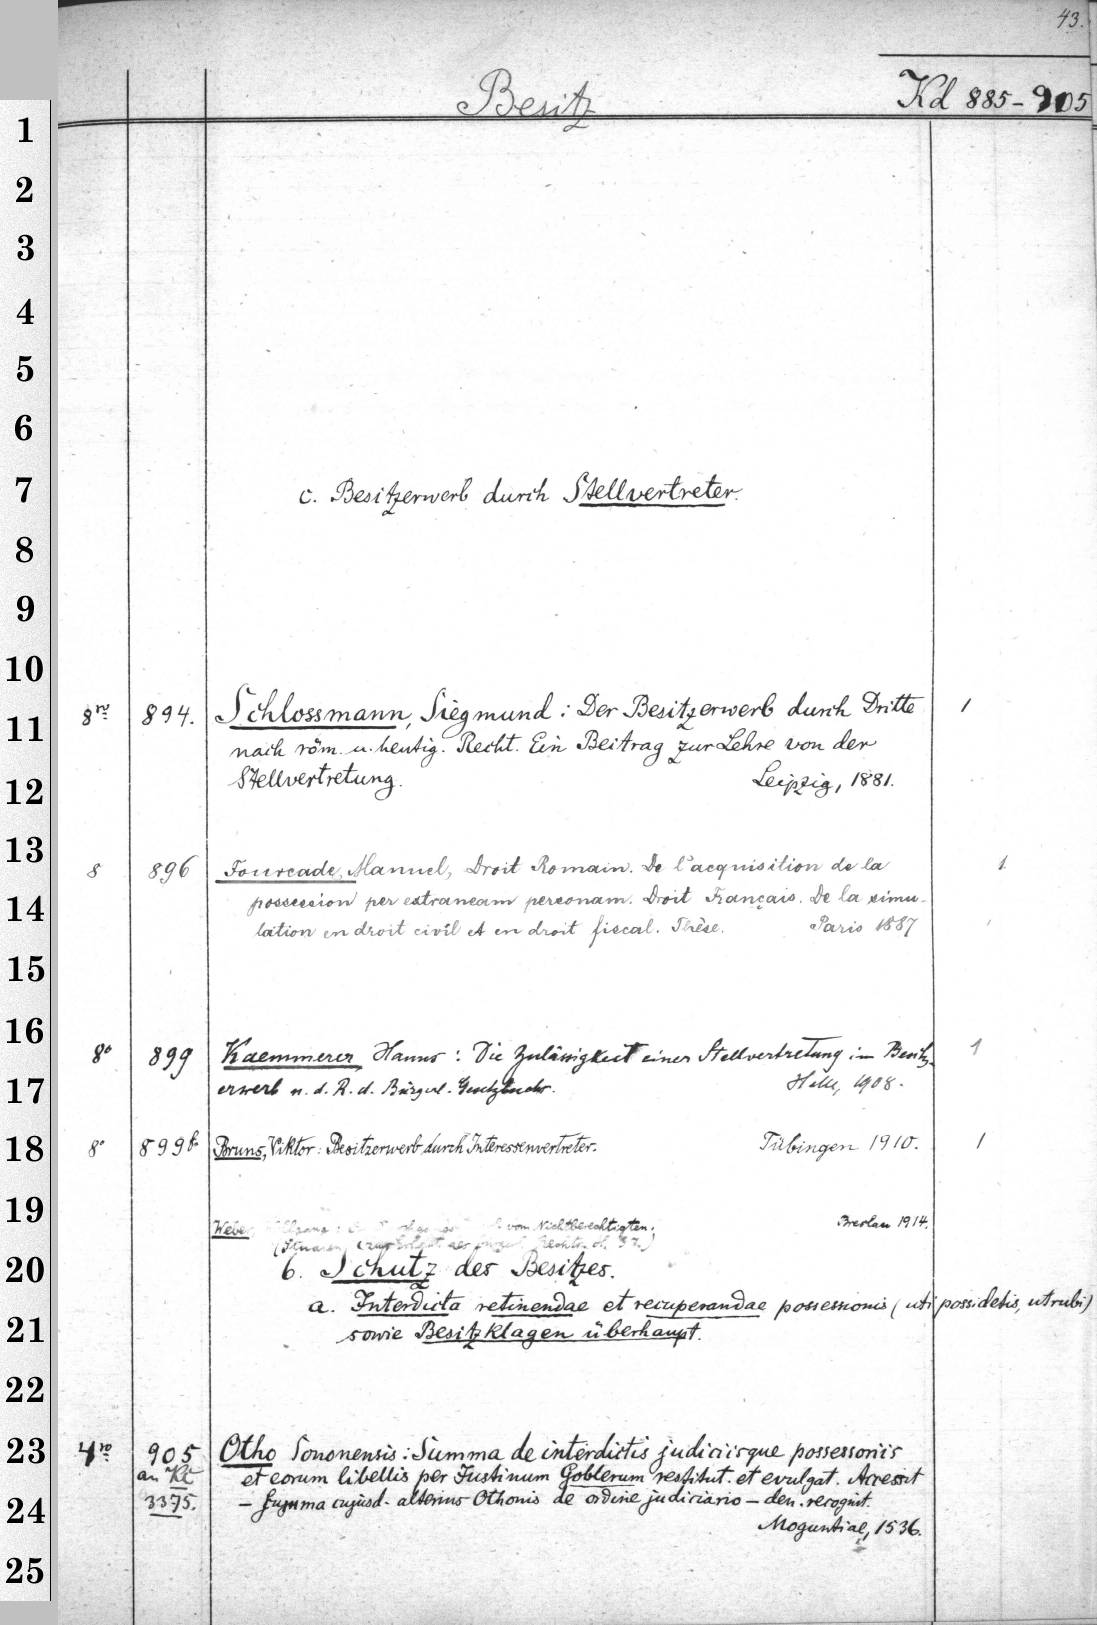 43.
Besitz
Kd 885-905
c. Besitzerwerb durch Stellvertreter.
8vo 894. Schlossmann, Siegmund: Der Besitzerwerb durch Dritte 1
nach röm. u. heutig. Recht. Ein Beitrag zur Lehre von der
Stellvertretung. Leipzig, 1881.
8 896 Fourcade, Manuel, Droit Romain. De l'acquisition de la 1
possession per extraneam personam. Droit Français. De la simu-
lation en droit civil et en droit fiscal. Thèse. Paris 1887
8° 899 Kaemmerer, Hanns: Die Zulässigkeit einer Stellvertretung im Besitz- 1
erwerb n. d. R. d. Bürgerl. Gesetzbuchs. Halle, 1908.
8° 899b Bruns, Viktor: Besitzerwerb durch Interessenvertreter. Tübingen 1910. 1
Weber vom Nichtberechtigten. Breslau 1914.
37.)
b. Schutz des Besitzes.
a. Interdicta retinendae et recuperandae possessionis (uti possidetis, utrubi)
sowie Besitzklagen überhaupt.
4ro 905 Otho Sononensis: Summa de interdictis judiciisque possessoriis
an Kt et eorum libellis per Justinum Goblerum restitut. et evulgat. Accessit
3375. — Summa cujusd. alterius Othonis de ordine judiciario — den. recognit.
Moguntiae, 1536.
1
2
3
4
5
6
7
8
9
10
11
12
13
14
15
16
17
18
19
20
21
22
23
24
25